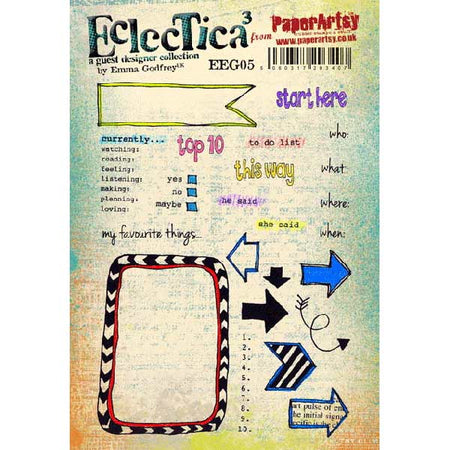 EClecTica³
from
PaperArtsy
www.paperartsy.co.uk
a guest designer collection
by Emma Godfrey UK
EEG05
5 060317 293407
start here
currently...
top 10
to do list
who:
watching:
reading:
feeling:
this way
what:
listening:
yes
making:
no
he said
where:
planning:
loving:
maybe
she said
my favourite things...
when:
1.
2.
3.
4.
5.
6.
7.
8.
9.
10.
art pulse of em
the initial signa